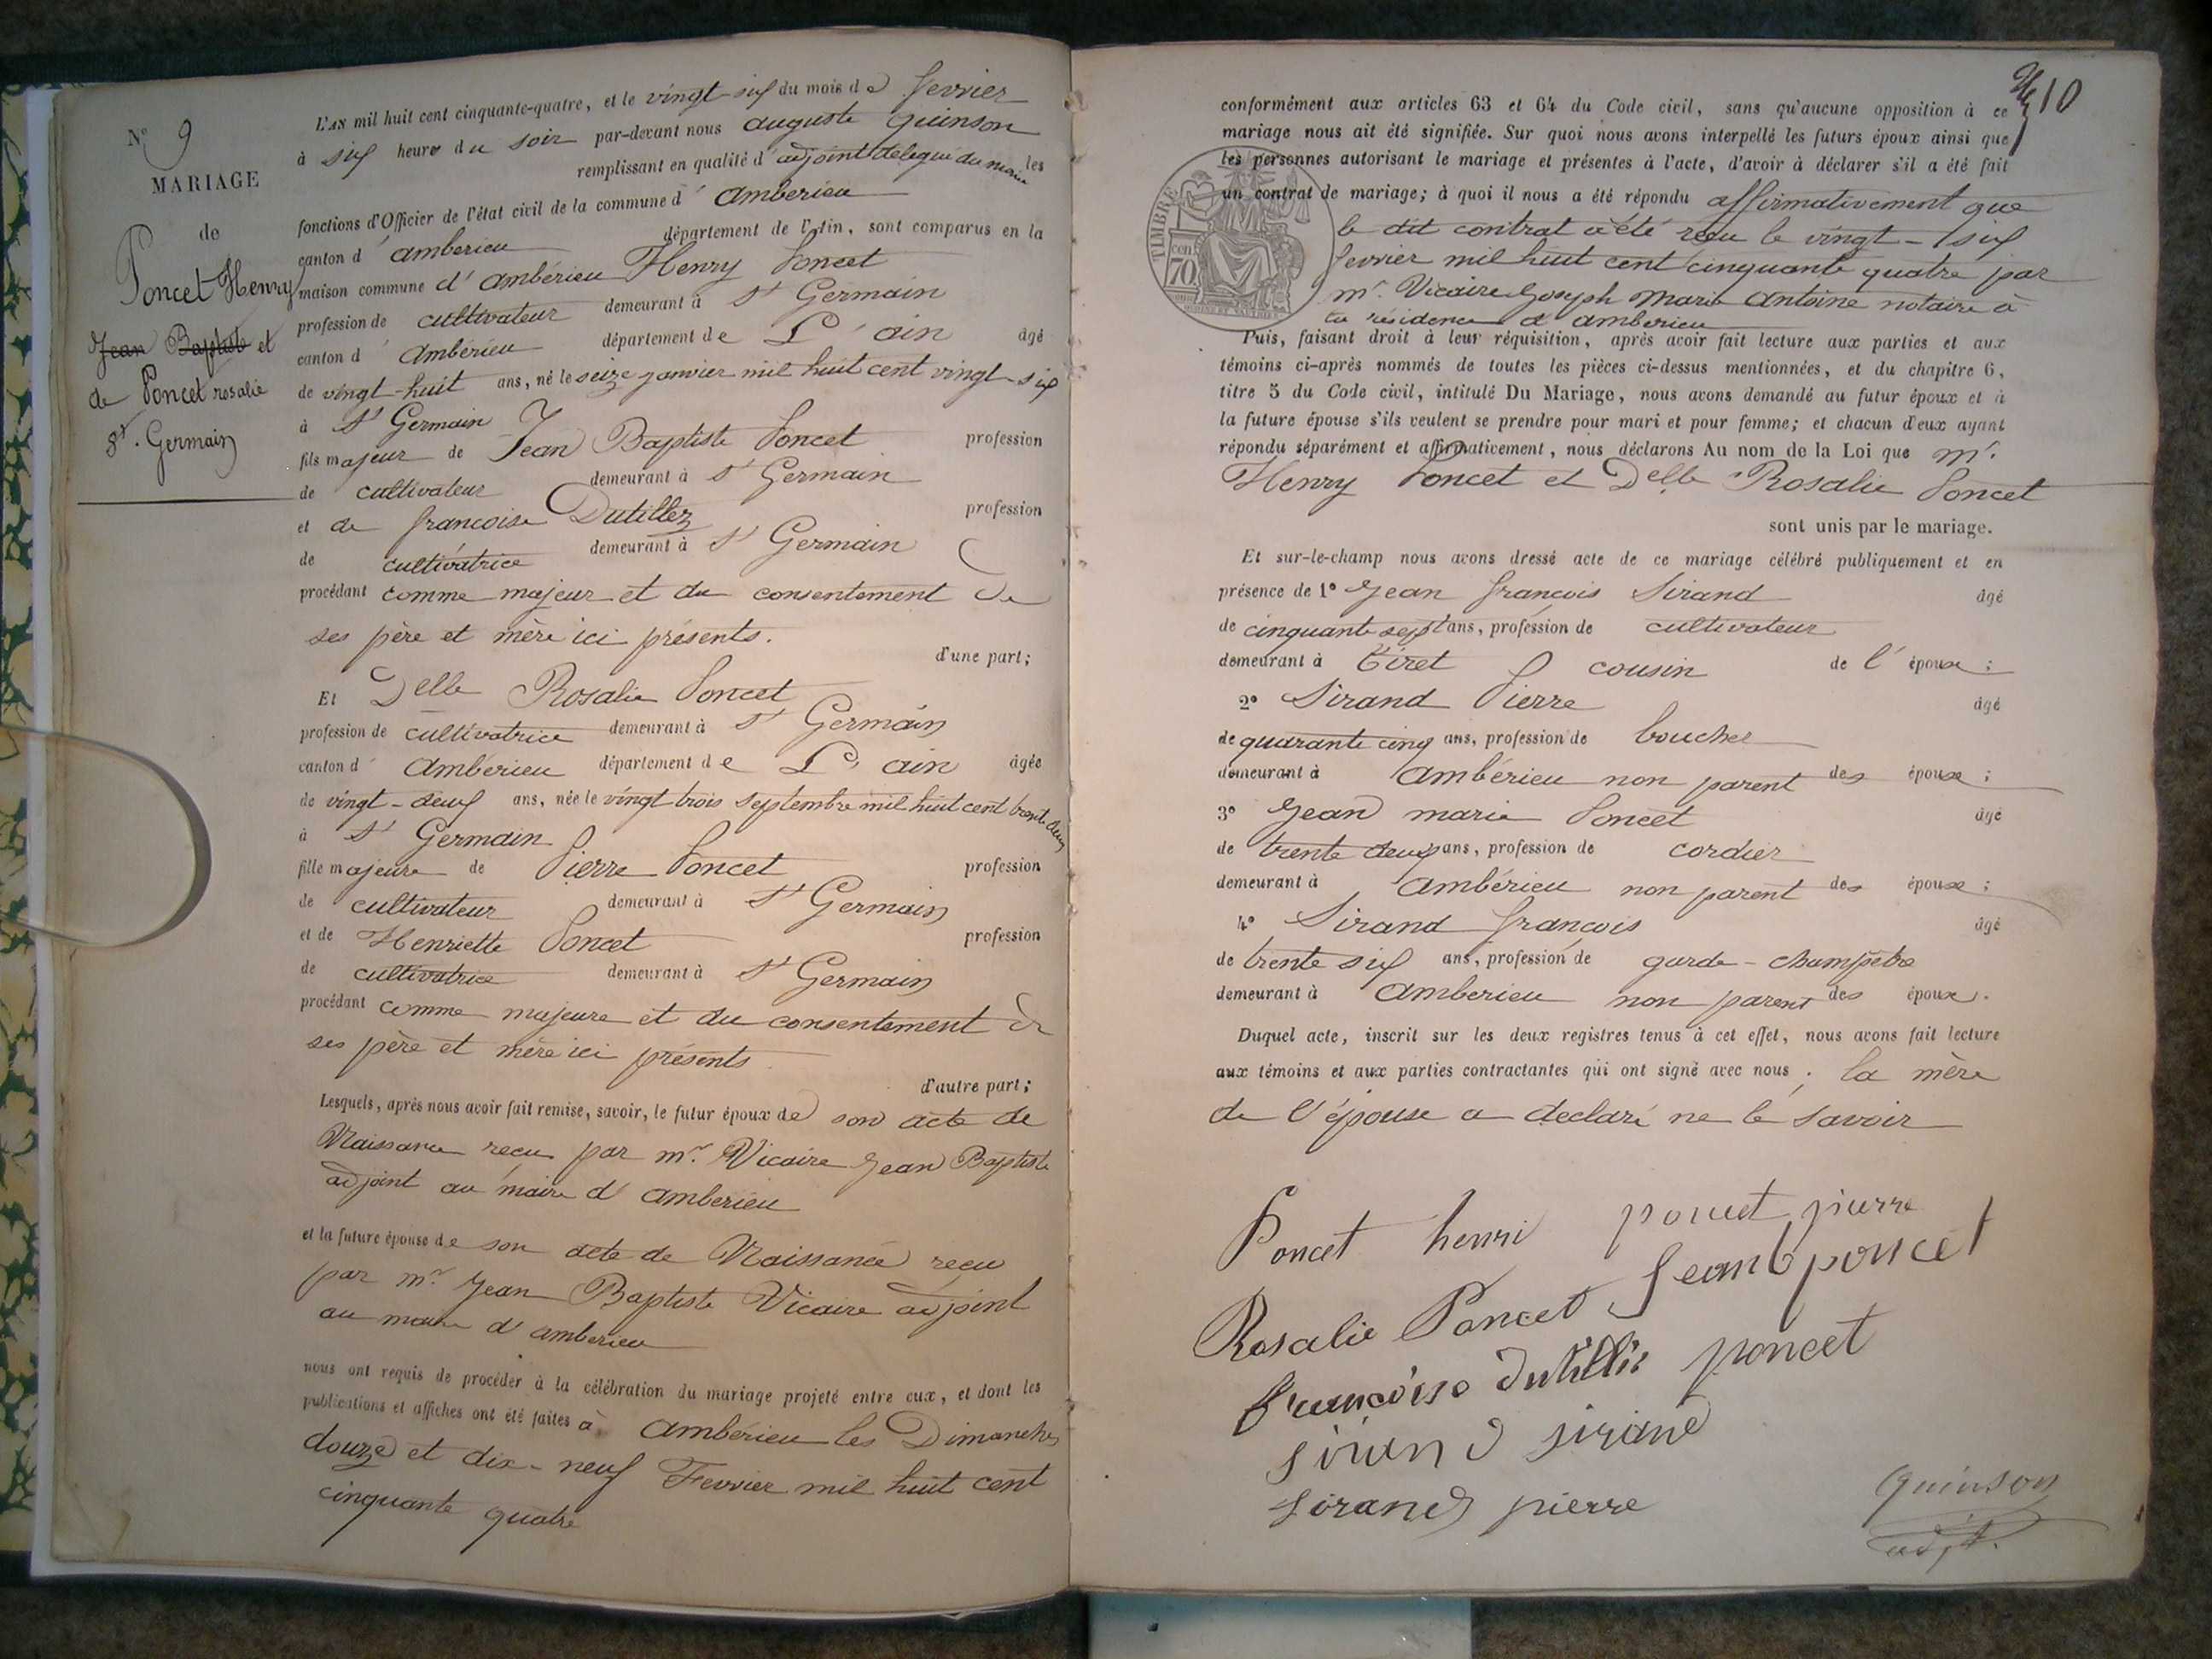 N° 9
MARIAGE
de
Poncet Henry
Jean Baptiste et
de Poncet rosalie
St. Germain
L'AN mil huit cent cinquante-quatre, et le vingt-six du mois de fevrier
à six heures du soir par-devant nous auguste Quinson
remplissant en qualité d'adjoint délégué du maire les
fonctions d'Officier de l'état civil de la commune d'amberieu
canton d'amberieu département de l'Ain, sont comparus en la
maison commune d'ambérieu Henry Poncet
profession de cultivateur demeurant à St Germain
canton d'Ambérieu département de L'ain âgé
de vingt-huit ans, né le seize janvier mil huit cent vingt-six
à St Germain
fils majeur de Jean Baptiste Poncet profession
de cultivateur demeurant à St Germain
et de francoise Dutillez profession
de cultivatrice demeurant à St Germain
procédant comme majeur et du consentement de
ses père et mère ici présents.
d'une part;
Et Delle Rosalie Poncet
profession de cultivatrice demeurant à St Germain
canton d'Ambérieu département de L'ain âgée
de vingt-deux ans, née le vingt trois septembre mil huit cent trente deux
à St Germain
fille majeure de Pierre Poncet profession
de cultivateur demeurant à St Germain
et de Henriette Poncet profession
de cultivatrice demeurant à St Germain
procédant comme majeure et du consentement de
ses père et mère ici présents
d'autre part;
Lesquels, après nous avoir fait remise, savoir, le futur époux de son acte de
Naissance recu par mr. Vicaire Jean Baptiste
adjoint au maire d'amberieu
et la future épouse de son acte de Naissance recu
par mr Jean Baptiste Vicaire adjoint
au maire d'amberieu
nous ont requis de procéder à la célébration du mariage projeté entre eux, et dont les
publications et affiches ont été faites à Ambérieu les Dimanches
douze et dix-neuf Fevrier mil huit cent
cinquante quatre
10
conformément aux articles 63 et 64 du Code civil, sans qu'aucune opposition à ce
mariage nous ait été signifiée. Sur quoi nous avons interpellé les futurs époux ainsi que
les personnes autorisant le mariage et présentes à l'acte, d'avoir à déclarer s'il a été fait
un contrat de mariage; à quoi il nous a été répondu affirmativement que
le dit contrat a été reçu le vingt-six
fevrier mil huit cent cinquante quatre par
mr. Vicaire Joseph Marie Antoine notaire à
la résidence d'amberieu
TIMBRE
cen
70
Puis, faisant droit à leur réquisition, après avoir fait lecture aux parties et aux
témoins ci-après nommés de toutes les pièces ci-dessus mentionnées, et du chapitre 6,
titre 5 du Code civil, intitulé Du Mariage, nous avons demandé au futur époux et à
la future épouse s'ils veulent se prendre pour mari et pour femme; et chacun d'eux ayant
répondu séparément et affirmativement, nous déclarons Au nom de la Loi que mr.
Henry Poncet et Delle Rosalie Poncet
sont unis par le mariage.
Et sur-le-champ nous avons dressé acte de ce mariage célébré publiquement et en
présence de 1° Jean françois Sirand âgé
de cinquante sept ans, profession de cultivateur
demeurant à Tiret cousin de l'épouse;
2° Sirand Pierre âgé
de quarante cinq ans, profession de boucher
demeurant à Ambérieu non parent des époux;
3° Jean marie Poncet âgé
de trente deux ans, profession de cordier
demeurant à Ambérieu non parent des époux;
4° Sirand françois âgé
de trente six ans, profession de garde-champêtre
demeurant à Amberieu non parent des époux.
Duquel acte, inscrit sur les deux registres tenus à cet effet, nous avons fait lecture
aux témoins et aux parties contractantes qui ont signé avec nous. la mère
de l'épouse a declaré ne le savoir
Poncet henri poncet pierre
Rosalie Poncet Jean b poncet
francoise dutillie poncet
sirand sirand
sirand pierre
Quinson
adjt.